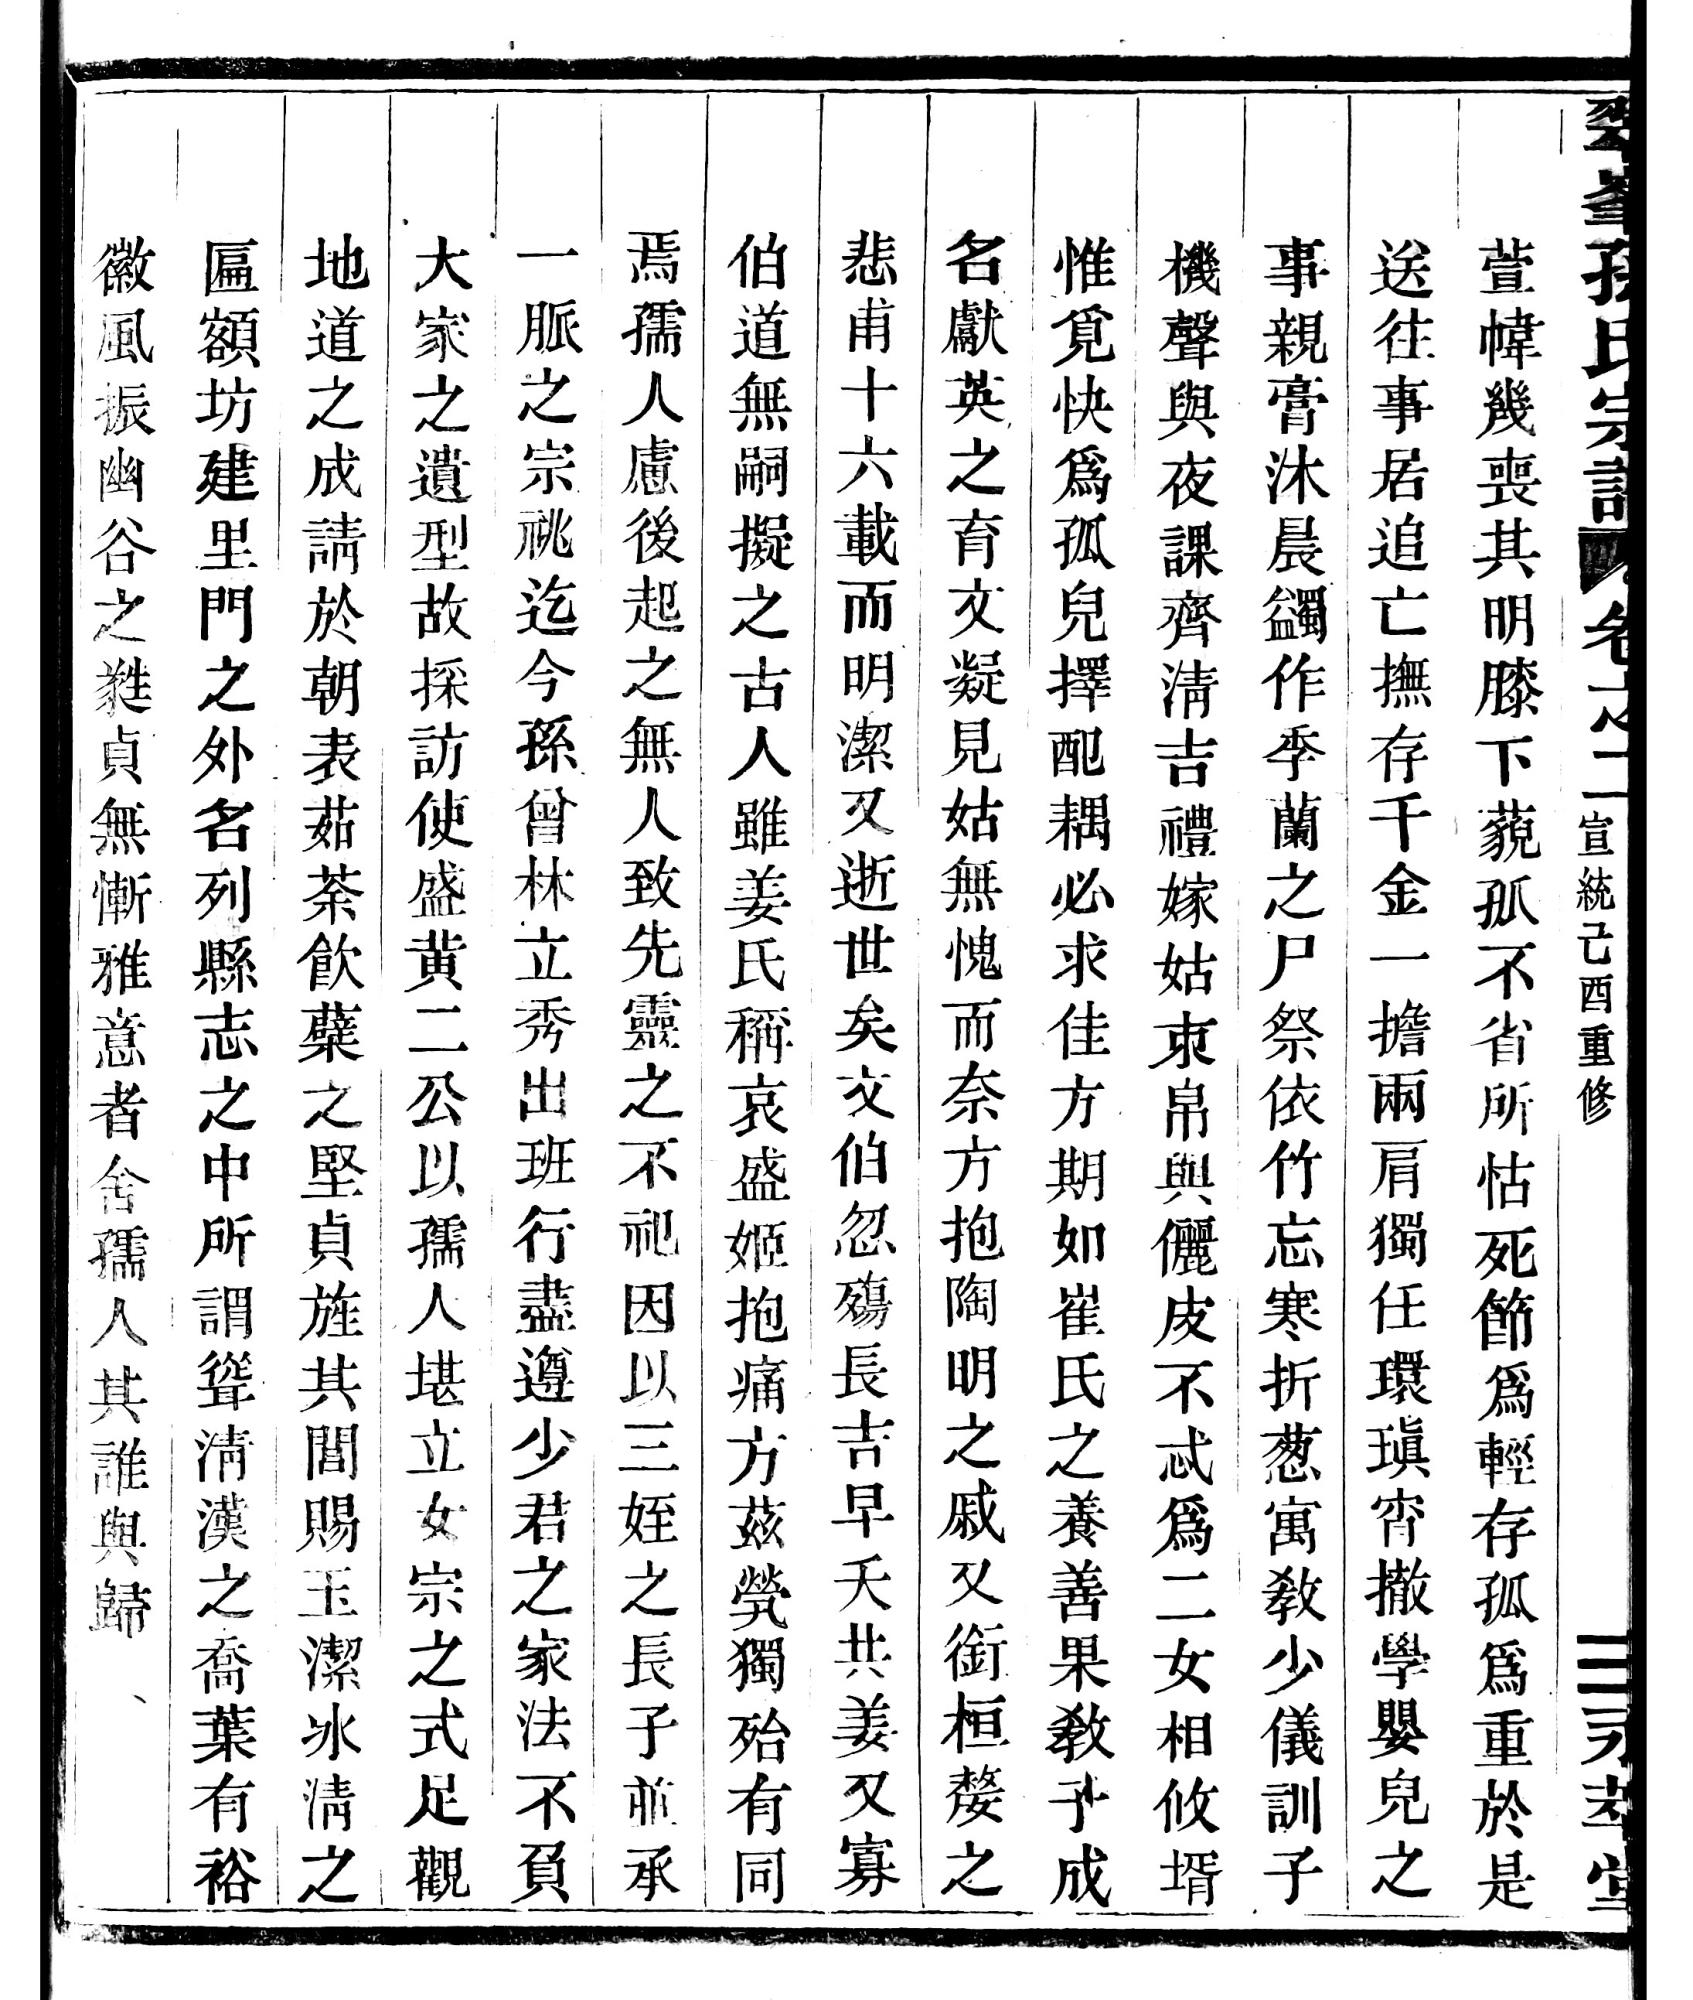 翠峯孫氏宗譜 卷之二 宣統己酉重修 三 永萃堂
萱幃幾喪其明膝下藐孤不省所怙死節爲輕存孤爲重於是
送往事居追亡撫存千金一擔兩肩獨任環瑱宵撤學嬰兒之
事親膏沐晨蠲作季蘭之尸祭依竹忘寒折葱寓敎少儀訓子
機聲與夜課齊淸吉禮嫁姑朿帛與儷皮不忒爲二女相攸壻
惟覓快爲孤兒擇配耦必求佳方期如崔氏之養善果敎子成
名獻英之育文凝見姑無愧而奈方抱陶明之戚又銜桓嫠之
悲甫十六載而明潔又逝世矣文伯忽殤長吉早夭共姜又寡
伯道無嗣擬之古人雖姜氏稱哀盛姬抱痛方茲煢獨殆有同
焉孺人慮後起之無人致先靈之不祀因以三姪之長子並承
一脈之宗祧迄今孫曾林立秀出班行盡遵少君之家法不負
大家之遺型故採訪使盛黃二公以孺人堪立女宗之式足觀
地道之成請於朝表茹荼飮蘗之堅貞旌其閭賜玉潔氷淸之
匾額坊建里門之外名列縣志之中所謂聳淸漢之喬葉有裕
徽風振幽谷之蕤貞無慚雅意者舍孺人其誰與歸